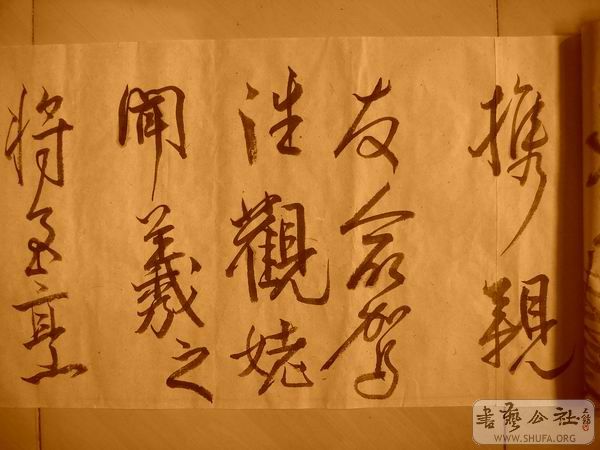 携親
友命駕
往觀姥
聞羲之
將至烹
書藝公社
WWW.SHUFA.ORG